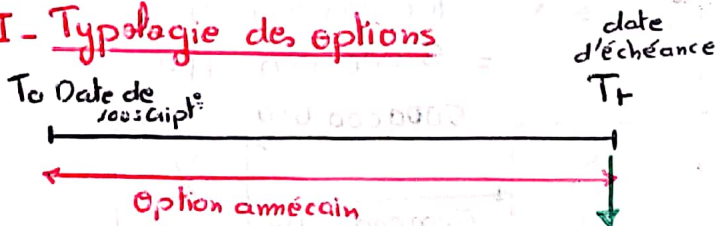 I - Typologie des options
date
d'échéance
To Date de
souscript°
Tt
Option amécain